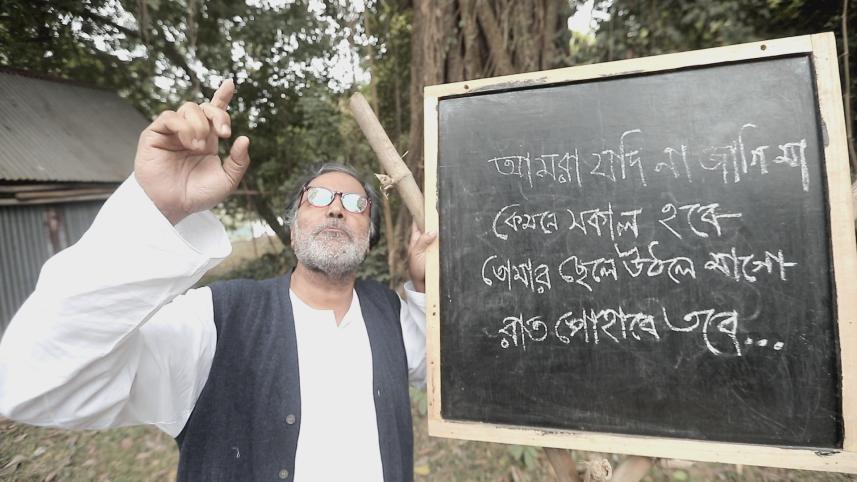 আমরা যদি না জাগি মা
কেমনে সকাল হবে-
তোমার ছেলে উঠলে মাগো-
রাত পোহাবে তবে...